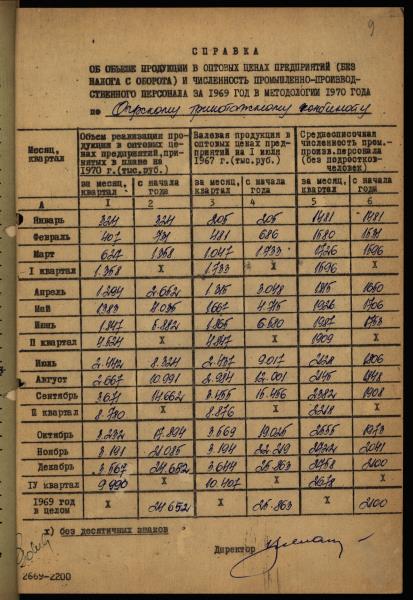 9
СПРАВКА
ОБ ОБЪЕМЕ ПРОДУКЦИИ В ОПТОВЫХ ЦЕНАХ ПРЕДПРИЯТИЙ (БЕЗ
НАЛОГА С ОБОРОТА) И ЧИСЛЕННОСТЬ ПРОМЫШЛЕННО-ПРОИЗВОД-
СТВЕННОГО ПЕРСОНАЛА ЗА 1969 ГОД В МЕТОДОЛОГИИ 1970 ГОДА
по Огрскому трикотажному комбинату
Месяц, квартал
Объем реализации продукции в оптовых ценах предприятий, принятых в плане на 1970 г. (тыс.руб.)
Валовая продукция в оптовых ценах предприятий на I июля 1967 г. (тыс.руб.)
Среднесписочная численность пром.-произв. персонала (без подростков-человек)
за месяц, квартал с начала года за месяц, квартал с начала года за месяц, квартал с начала года
А I 2 3 4 5 6
Январь 324 324 205 205 1481 1481
Февраль 407 731 481 686 1580 1531
Март 627 1358 1.047 1.733 1726 1596
I квартал 1.358 X 1733 X 1596 X
Апрель 1.294 2.652 1.315 3.048 1815 1650
Май 1383 4.035 1667 4.715 1926 1706
Июнь 1.847 5.882 1.865 6.580 1987 1753
II квартал 4.524 X 4.847 X 1909 X
Июль 2.442 8.324 2.437 9.017 2128 1806
Август 2.667 10.991 2.984 12.001 2145 1848
Сентябрь 3.671 14.662 3.455 15.456 2382 1908
III квартал 8.780 X 8.876 X 2218 X
Октябрь 3.232 17.894 3.569 19.025 2555 1973
Ноябрь 3.191 21.085 3.194 22.219 2041
Декабрь 3.567 24.652 3.644 25.863 2758 2100
IУ квартал 9.990 X 10.407 X X
1969 год в целом X 24.652 X 25.863 X 2100
x) без десятичных знаков
Директор
2669-2200